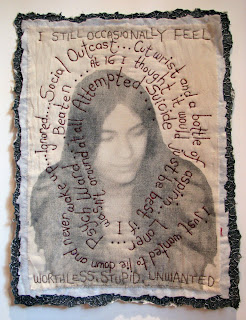 I STILL OCCASIONALLY FEEL
Ignored... Social Outcast... Cut wrist and a bottle of aspirin... I just wanted to lie down and never woke up...
Beaten... At 16 I thought it would just be best if I wasn't around at all...
Attempted Suicide
Psych Ward
WORTHLESS, STUPID, UNWANTED